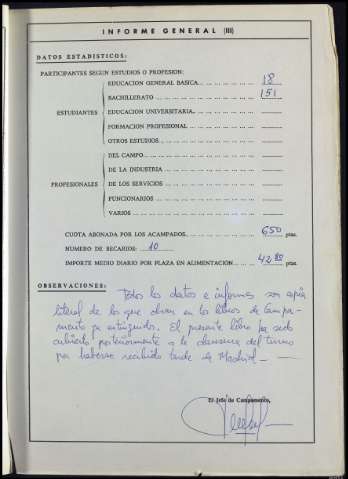 INFORME GENERAL (III)
DATOS ESTADISTICOS:
PARTICIPANTES SEGUN ESTUDIOS O PROFESION:
EDUCACION GENERAL BASICA 18
BACHILLERATO 151
ESTUDIANTES EDUCACION UNIVERSITARIA
FORMACION PROFESIONAL
OTROS ESTUDIOS
DEL CAMPO
DE LA INDUSTRIA
PROFESIONALES DE LOS SERVICIOS
FUNCIONARIOS
VARIOS
CUOTA ABONADA POR LOS ACAMPADOS 650 ptas.
NUMERO DE BECARIOS: 10
IMPORTE MEDIO DIARIO POR PLAZA EN ALIMENTACION 42,80 ptas.
OBSERVACIONES:
Todos los datos e informes son copia
literal de los que obran en los libros de Campa-
mento ya extinguidos. El presente libro ha sido
cubierto posteriormente a la clausura del turno
por haberse recibido tarde de Madrid.
El Jefe de Campamento,